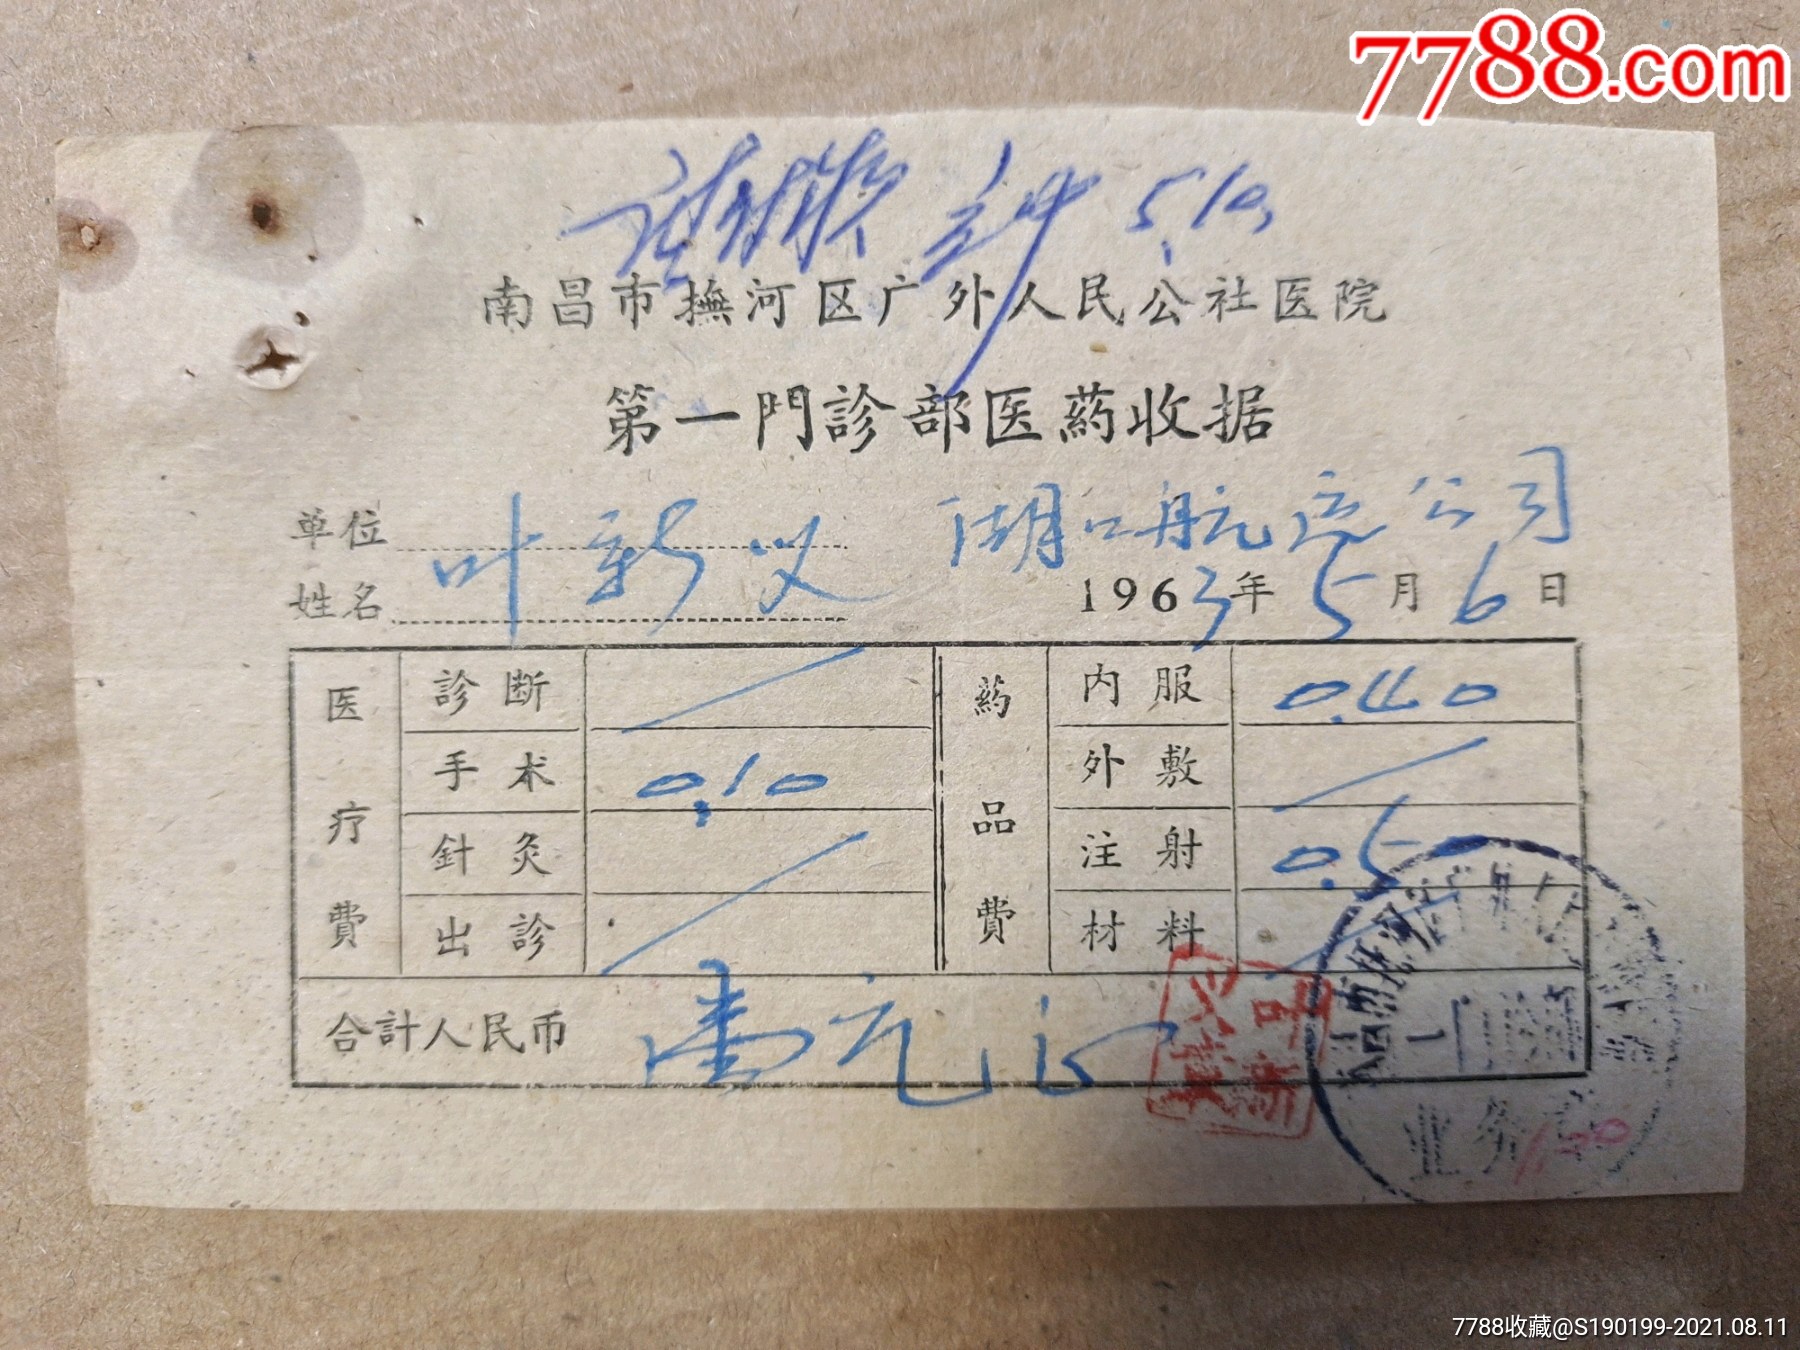 7788.com
5.10.
南昌市撫河区广外人民公社医院
第一門診部医葯收据
单位
湖口航运公司
姓名 叶新义 1963年5月6日
医疗費 診断 葯品費 内服 0.40
手术 0.10 外敷
針灸 注射 0.50
出診 材料
合計人民币 壹元正
叶新
业务
1.00
7788收藏@S190199-2021.08.11